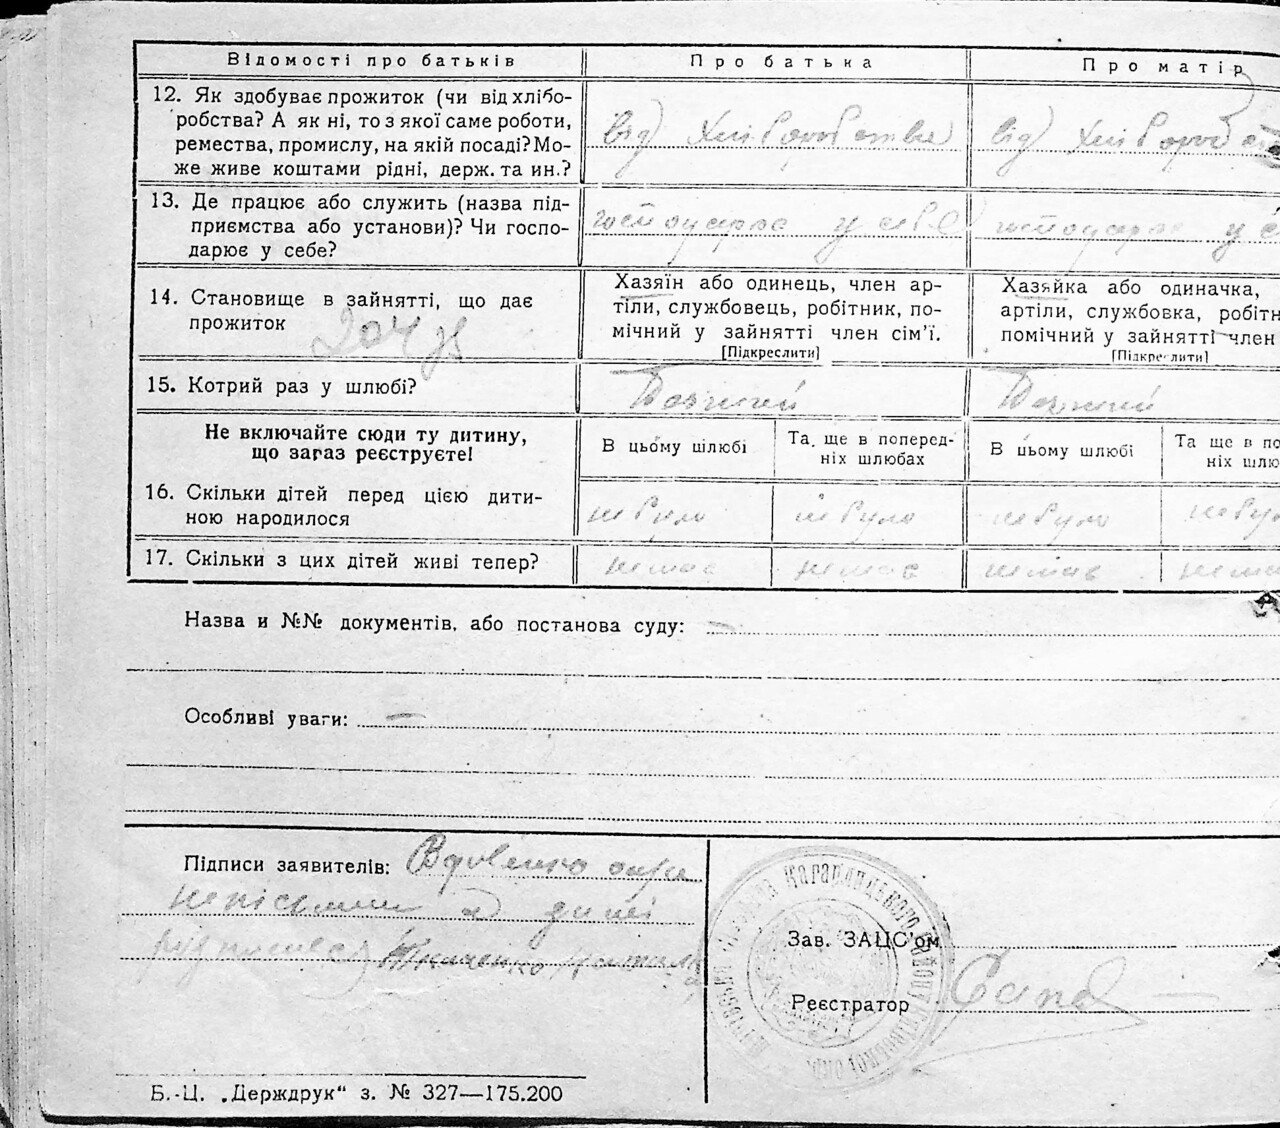 Відомості про батьків Про батька Про матір
12. Як здобуває прожиток (чи від хлібо-
робства? А як ні, то з якої саме роботи,
ремества, промислу, на якій посаді? Мо-
же живе коштами рідні, держ. та ин.?
від хліборобства від хлібороб
13. Де працює або служить (назва під-
приємства або установи)? Чи госпо-
дарює у себе?
господарює у себе господарює у
14. Становище в зайнятті, що дає
прожиток
Хазяїн або одинець, член ар-
тіли, службовець, робітник, по-
мічний у зайнятті член сім'ї.
[Підкреслити]
Хазяйка або одиначка,
артіли, службовка, робітн
помічний у зайнятті член
[Підкреслити]
15. Котрий раз у шлюбі?
Не включайте сюди ту дитину,
що зараз реєструєте!
В цьому шлюбі Та, ще в поперед-
ніх шлюбах
В цьому шлюбі Та ще в по
ніх шлю
16. Скільки дітей перед цією дити-
ною народилося
не було не було не було не було
17. Скільки з цих дітей живі тепер?
немає немає немає нема
Назва и №№ документів, або постанова суду: —
Особливі уваги: —
Підписи заявителів: Вдовенко
Ткаченко
Зав. ЗАЦС'ом
Реєстратор
Кагарлицького
Б.-Ц. „Держдрук“ з. № 327—175.200